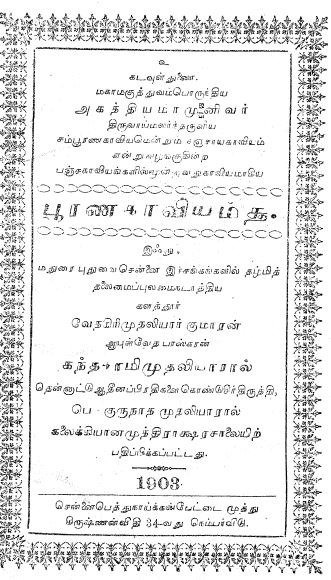 உ
கடவுள்துணை.
மகாமகத்துவம்பொருந்திய
அகத்தியமாமுனிவர்
திருவாய்மலர்ந்தருளிய
சம்பூரணகாவியமென்னும்
என்று வழங்குகின்ற
பஞ்சகாவியங்களில்
பூரணகாவியம்
இஃது,
மதுரை புதுவை சென்னை இச்சங்கங்களில் தமிழ்த்
தலைமைப்புலமைநடாத்திய
களத்தூர்
வேதகிரிமுதலியார் குமாரன்
ஆயுள்வேத பாஸ்கரன்
கந்தசாமிமுதலியாரால்
தென்னாட்டு ஆதினப்பிரதிகளைகொண்டு
பெ - குருநாத முதலியாரால்
கலைக்கியானமுத்திராக்ஷரசாலையிற்
பதிப்பிக்கப்பட்டது.
1903
சென்னைபெத்துநாய்க்கன்பேட்டை முத்து
கிருஷ்ணன்வீதி 34-வது நெம்பர்வீடு.